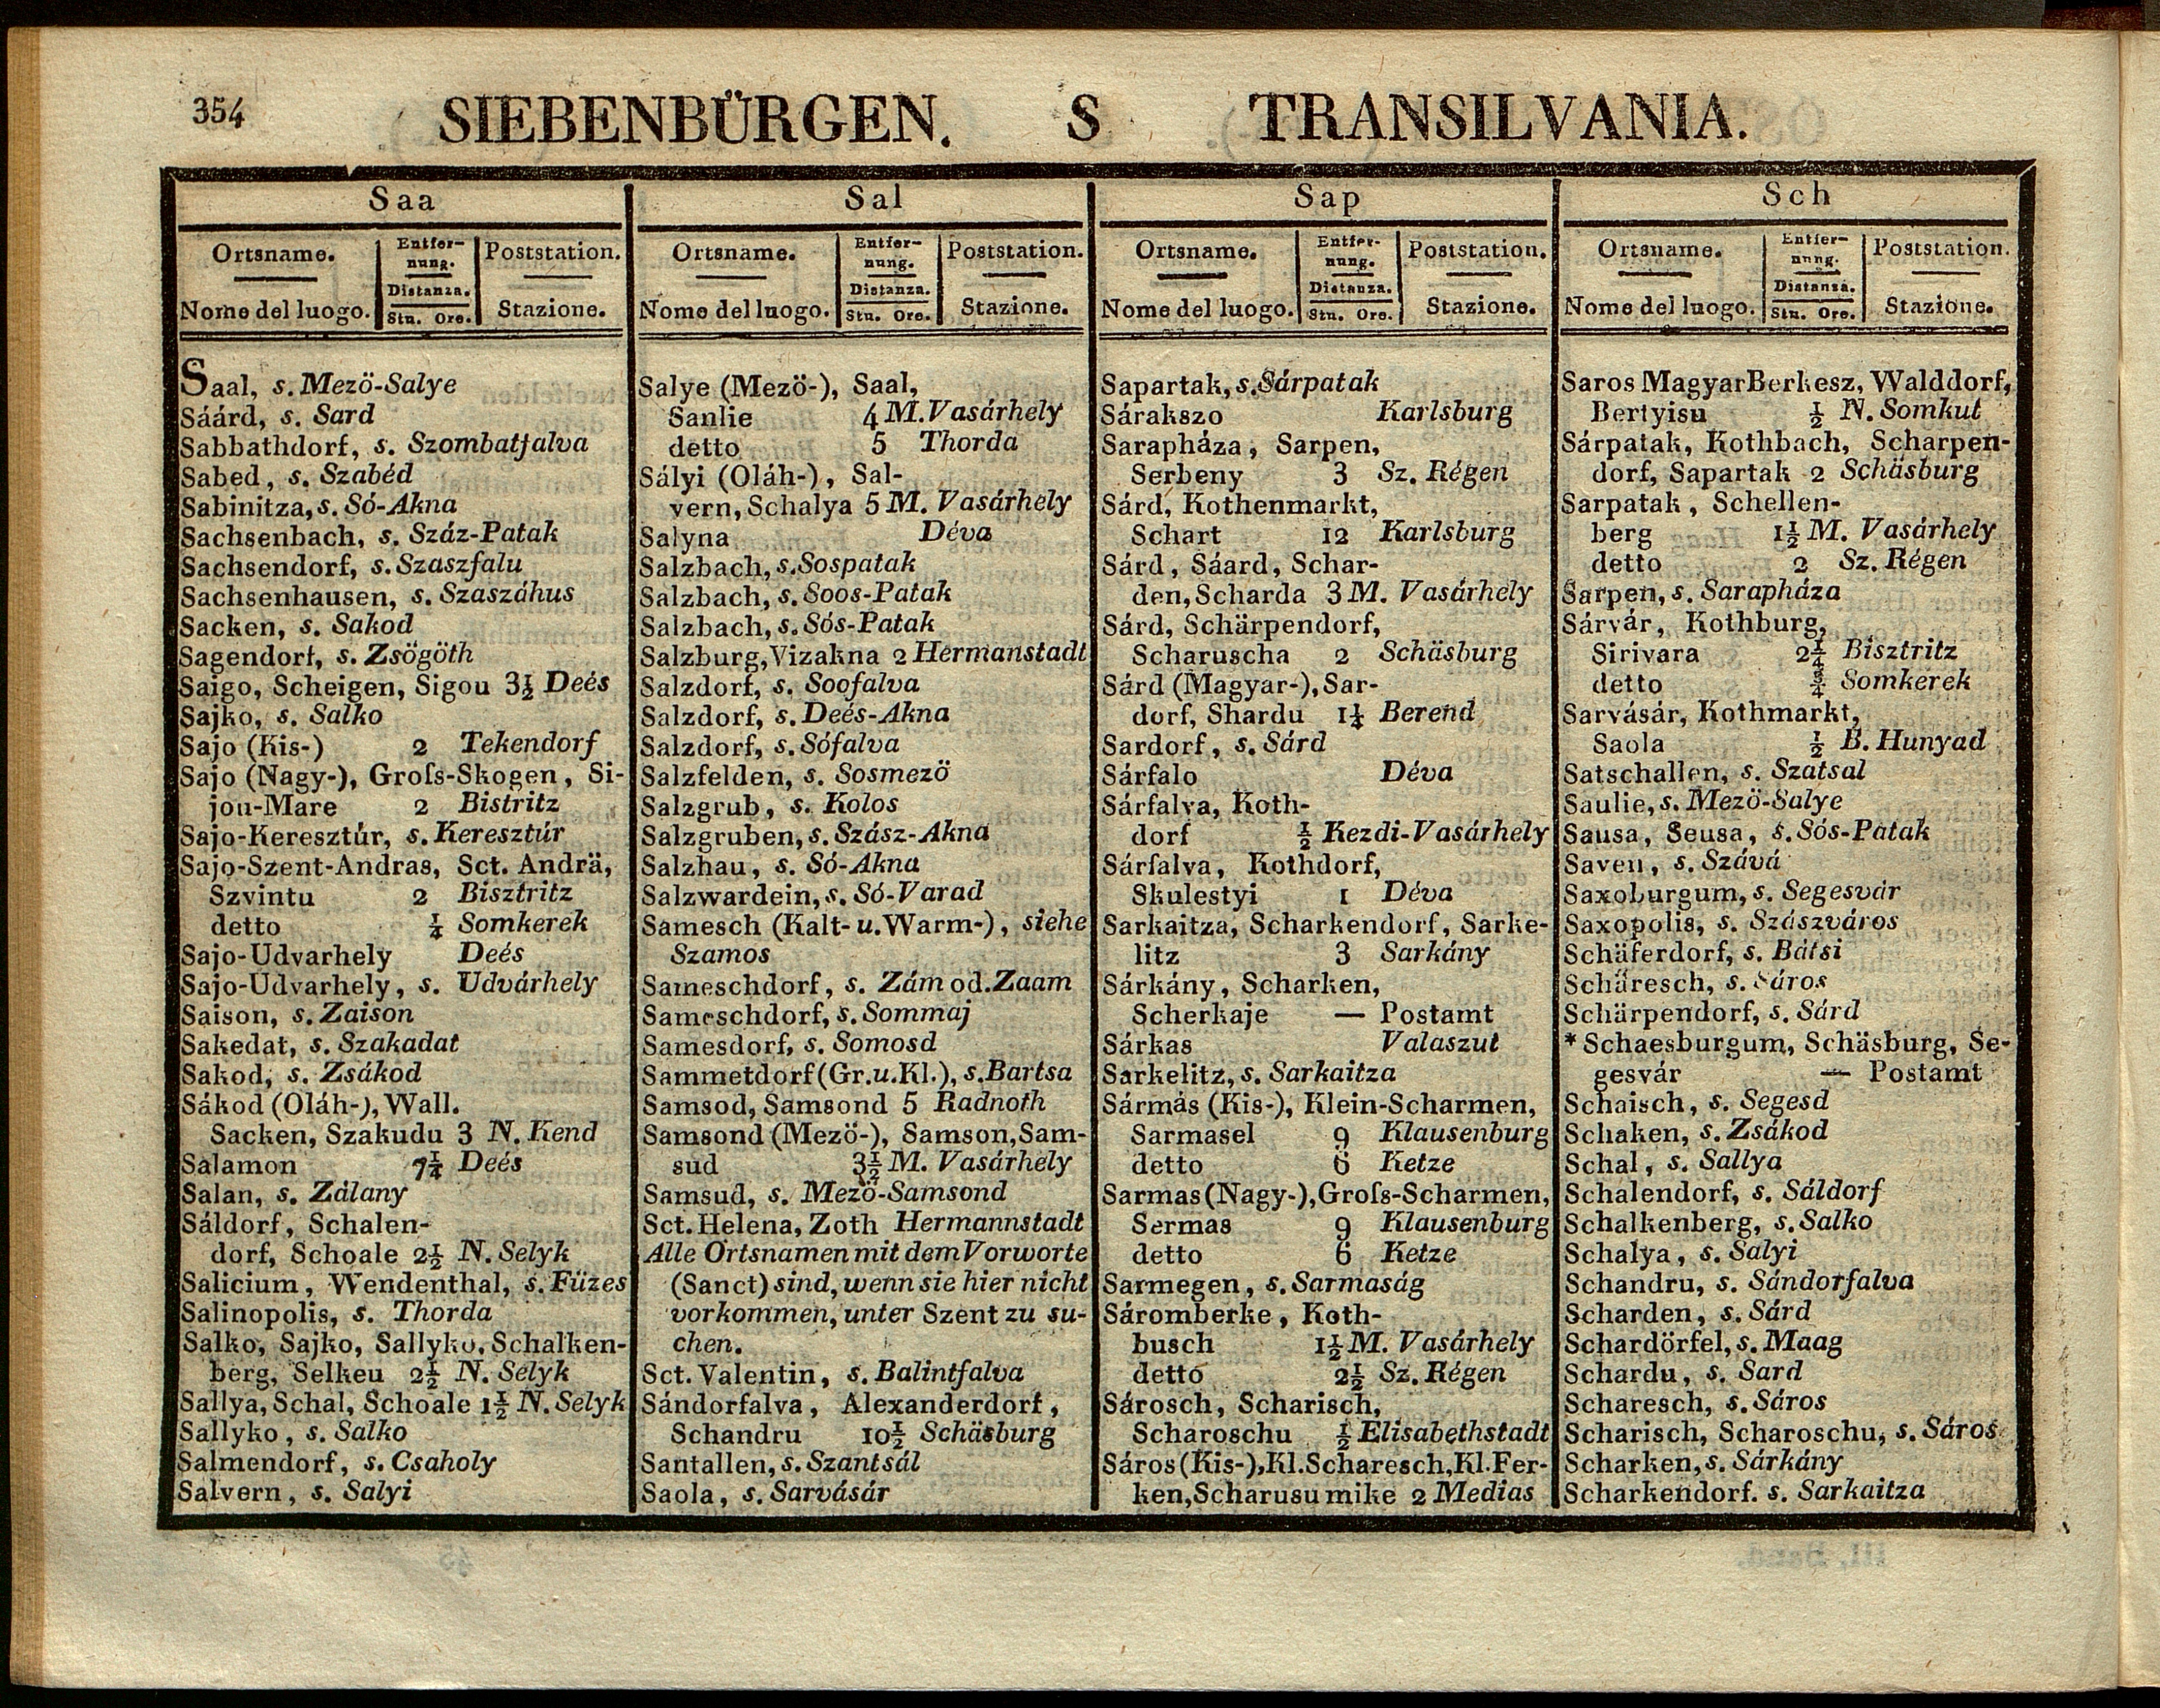 354
SIEBENBÜRGEN. S TRANSILVANIA.
Saa
Ortsname. Entfer-nung. Poststation.
Nome del luogo. Distanza. Stu. Ore. Stazione.
Saal, s. Mezö-Salye
Sáárd, s. Sard
Sabbathdorf, s. Szombatfalva
Sabed, s. Szabéd
Sabinitza, s. Só-Akna
Sachsenbach, s. Száz-Patak
Sachsendorf, s. Szaszfalu
Sachsenhausen, s. Szaszáhus
Sacken, s. Sakod
Sagendorf, s. Zsögöth
Saigo, Scheigen, Sigou 3½ Deés
Sajko, s. Salko
Sajo (Kis-) 2 Tekendorf
Sajo (Nagy-), Groſs-Skogen, Si-
jou-Mare 2 Bistritz
Sajo-Keresztúr, s. Keresztúr
Sajo-Szent-Andras, Sct. Andrä,
Szvintu 2 Bisztritz
detto ¼ Somkerek
Sajo-Udvarhely Deés
Sajo-Udvarhely, s. Udvárhely
Saison, s. Zaison
Sakedat, s. Szakadat
Sakod, s. Zsákod
Sákod (Oláh-), Wall.
Sacken, Szakudu 3 N. Kend
Salamon 7¼ Deés
Salan, s. Zálany
Sáldorf, Schalen-
dorf, Schoale 2½ N. Selyk
Salicium, Wendenthal, s. Füzes
Salinopolis, s. Thorda
Salko, Sajko, Sallyko, Schalken-
berg, Selkeu 2½ N. Selyk
Sallya, Schal, Schoale 1½ N. Selyk
Sallyko, s. Salko
Salmendorf, s. Csaholy
Salvern, s. Salyi
Sal
Ortsname. Entfer-nung. Poststation.
Nome del luogo. Distanza. Stu. Ore. Stazione.
Salye (Mezö-), Saal,
Sanlie 4 M. Vasárhely
detto 5 Thorda
Sályi (Oláh-), Sal-
vern, Schalya 5 M. Vasárhely
Salyna Déva
Salzbach, s. Sospatak
Salzbach, s. Soos-Patak
Salzbach, s. Sós-Patak
Salzburg, Vizakna 2 Hermanstadt
Salzdorf, s. Soofalva
Salzdorf, s. Deés-Akna
Salzdorf, s. Sófalva
Salzfelden, s. Sosmezö
Salzgrub, s. Kolos
Salzgruben, s. Szász-Akna
Salzhau, s. Só-Akna
Salzwardein, s. Só-Varad
Samesch (Kalt- u. Warm-), siehe
Szamos
Sameschdorf, s. Zám od. Zaam
Sameschdorf, s. Sommaj
Samesdorf, s. Somosd
Sammetdorf (Gr. u. Kl.), s. Bartsa
Samsod, Samsond 5 Radnoth
Samsond (Mezö-), Samson, Sam-
sud 3½ M. Vasárhely
Samsud, s. Mezö-Samsond
Sct. Helena, Zoth Hermannstadt
Alle Ortsnamen mit dem Vorworte
(Sanct) sind, wenn sie hier nicht
vorkommen, unter Szent zu su-
chen.
Sct. Valentin, s. Balintfalva
Sándorfalva, Alexanderdorf,
Schandru 10½ Schäsburg
Santallen, s. Szantsál
Saola, s. Sarvásár
Sap
Ortsname. Entfer-nung. Poststation.
Nome del luogo. Distanza. Stu. Ore. Stazione.
Sapartak, s. Sárpatak
Sárakszo Karlsburg
Sarapháza, Sarpen,
Serbeny 3 Sz. Régen
Sárd, Kothenmarkt,
Schart 12 Karlsburg
Sárd, Sáard, Schar-
den, Scharda 3 M. Vasárhely
Sárd, Schärpendorf,
Scharuscha 2 Schäsburg
Sárd (Magyar-), Sar-
dorf, Shardu 1¼ Berend
Sardorf, s. Sárd
Sárfalo Déva
Sárfalva, Koth-
dorf ½ Kezdi-Vasárhely
Sárfalva, Kothdorf,
Skulestyi 1 Déva
Sarkaitza, Scharkendorf, Sarke-
litz 3 Sarkány
Sárkány, Scharken,
Scherkaje — Postamt
Sárkas Valaszut
Sarkelitz, s. Sarkaitza
Sármás (Kis-), Klein-Scharmen,
Sarmasel 9 Klausenburg
detto 6 Ketze
Sarmas (Nagy-), Groſs-Scharmen,
Sermas 9 Klausenburg
detto 6 Ketze
Sarmegen, s. Sarmaság
Sáromberke, Koth-
busch 1½ M. Vasárhely
detto 2½ Sz. Régen
Sárosch, Scharisch,
Scharoschu ½ Elisabethstadt
Sáros (Kis-), Kl. Scharesch, Kl. Fer-
ken, Scharusu mike 2 Medias
Sch
Ortsname. Entfer-nung. Poststation.
Nome del luogo. Distanza. Stu. Ore. Stazione.
Saros Magyar Berkesz, Walddorf,
Bertyisu ½ N. Somkut
Sárpatak, Kothbach, Scharpen-
dorf, Sapartak 2 Schäsburg
Sarpatak, Schellen-
berg 1½ M. Vasárhely
detto 2 Sz. Régen
Sarpen, s. Sarapháza
Sárvár, Kothburg,
Sirivara 2¼ Bisztritz
detto ¾ Somkerek
Sarvásár, Kothmarkt,
Saola ½ B. Hunyad
Satschallen, s. Szatsal
Saulie, s. Mezö-Salye
Sausa, Seusa, s. Sós-Patak
Saven, s. Szává
Saxoburgum, s. Segesvár
Saxopolis, s. Szászváros
Schäferdorf, s. Bátsi
Schäresch, s. Sáros
Schärpendorf, s. Sárd
* Schaesburgum, Schäsburg, Se-
gesvár — Postamt
Schaisch, s. Segesd
Schaken, s. Zsákod
Schal, s. Sallya
Schalendorf, s. Sáldorf
Schalkenberg, s. Salko
Schalya, s. Salyi
Schandru, s. Sándorfalva
Scharden, s. Sárd
Schardörfel, s. Maag
Schardu, s. Sard
Scharesch, s. Sáros
Scharisch, Scharoschu, s. Sáros
Scharken, s. Sárkány
Scharkendorf. s. Sarkaitza